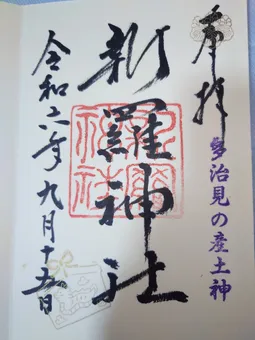 奉拝
多治見の産土神
新羅神社
令和六年九月十五日